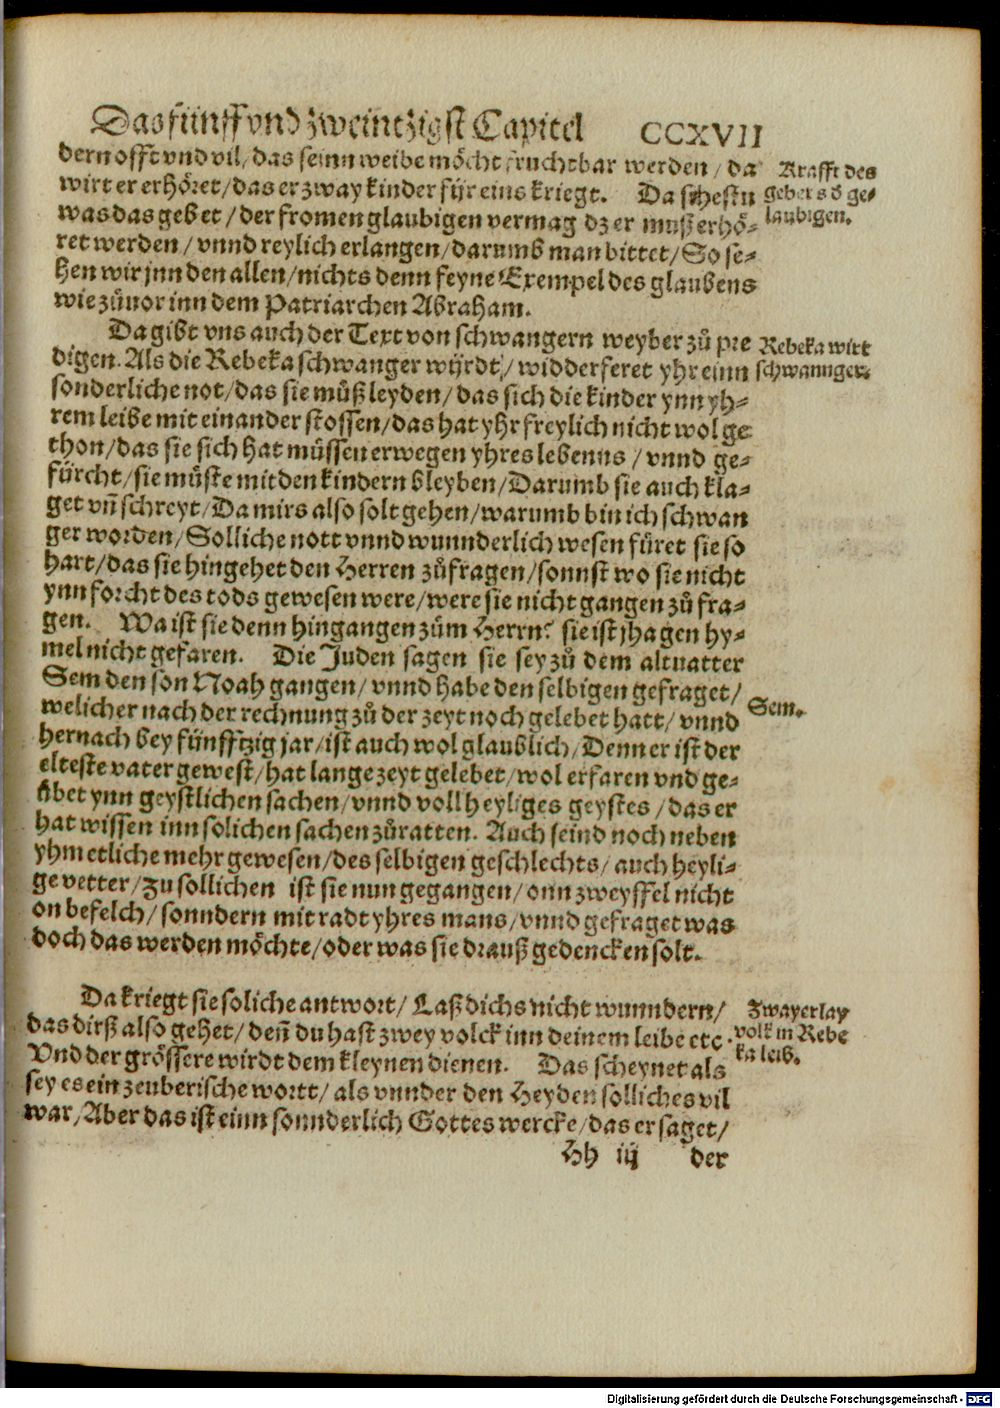 Das fünff vnd zweintzigst Capitel CCXVII
dern offt vnd vil/das seinn weibe möcht fruchtbar werden/da
wirt er erhöret/das er zway kinder fÿr eins kriegt. Da sihestu
was das gebet/der fromen glaubigen vermag dz er muß erhö-
ret werden/vnnd reylich erlangen/darumb man bittet/So se-
hen wir jnn den allen/nichts denn feyne Exempel des glaubens
wie zůuor inn dem Patriarchen Abraham.
Krafft des
gebets d ge-
laubigen.
Da gibt vns auch der Text von schwangern weyber zů pre
digen. Als die Rebeka schwanger wÿrdt/widderferet yhr einn
sonderliche not/das sie můß leyden/das sich die kinder ynn yh-
rem leibe mit einander stossen/das hat yhr freylich nicht wol ge
thon/das sie sich hat müssen erwegen yhres lebenns/vnnd ge-
fürcht/sie müste mit den kindern bleyben/Darumb sie auch kla-
get vñ schreyt/Da mirs also solt gehen/warumb bin ich schwan
ger worden/Solliche nott vnnd wunnderlich wesen füret sie so
hart/das sie hingehet den Herren zůfragen/sonnst wo sie nicht
ynn forcht des tods gewesen were/were sie nicht gangen zů fra-
gen. Wa ist sie denn hingangen zům Herrn? sie ist jha gen hy-
mel nicht gefaren. Die Juden sagen sie sey zů dem altuatter
Sem den son Noah gangen/vnnd habe den selbigen gefraget/
welicher nach der rechnung zů der zeyt noch gelebet hatt/vnnd
hernach bey fünfftzig jar/ist auch wol glaublich/Denn er ist der
elteste vater gewest/hat lange zeyt gelebet/wol erfaren vnd ge-
übet ynn geystlichen sachen/vnnd voll heyliges geystes/das er
hat wissen inn solichen sachen zůratten. Auch seind noch neben
yhm etliche mehr gewesen/des selbigen geschlechts/auch heyli-
ge vetter/Zu sollichen ist sie nun gegangen/onn zweyffel nicht
on befelch/sonndern mit radt yhres mans/vnnd gefraget was
doch das werden möchte/oder was sie drauß gedencken solt.
Rebeka wirt
schwannger.
Sem.
Da kriegt sie soliche antwort/Laß dichs nicht wunndern/
das dirß also gehet/deñ du hast zwey volck inn deinem leibe etc.
Vnd der grössere wirdt dem kleynen dienen. Das scheynet als
sey es ein zeuberische wortt/als vnnder den Heyden solliches vil
war/Aber das ist einn sonnderlich Gottes wercke/das er saget/
Zwayerlay
volk in Rebe
ka leib.
Hh iij der
Digitalisierung gefördert durch die Deutsche Forschungsgemeinschaft - DFG